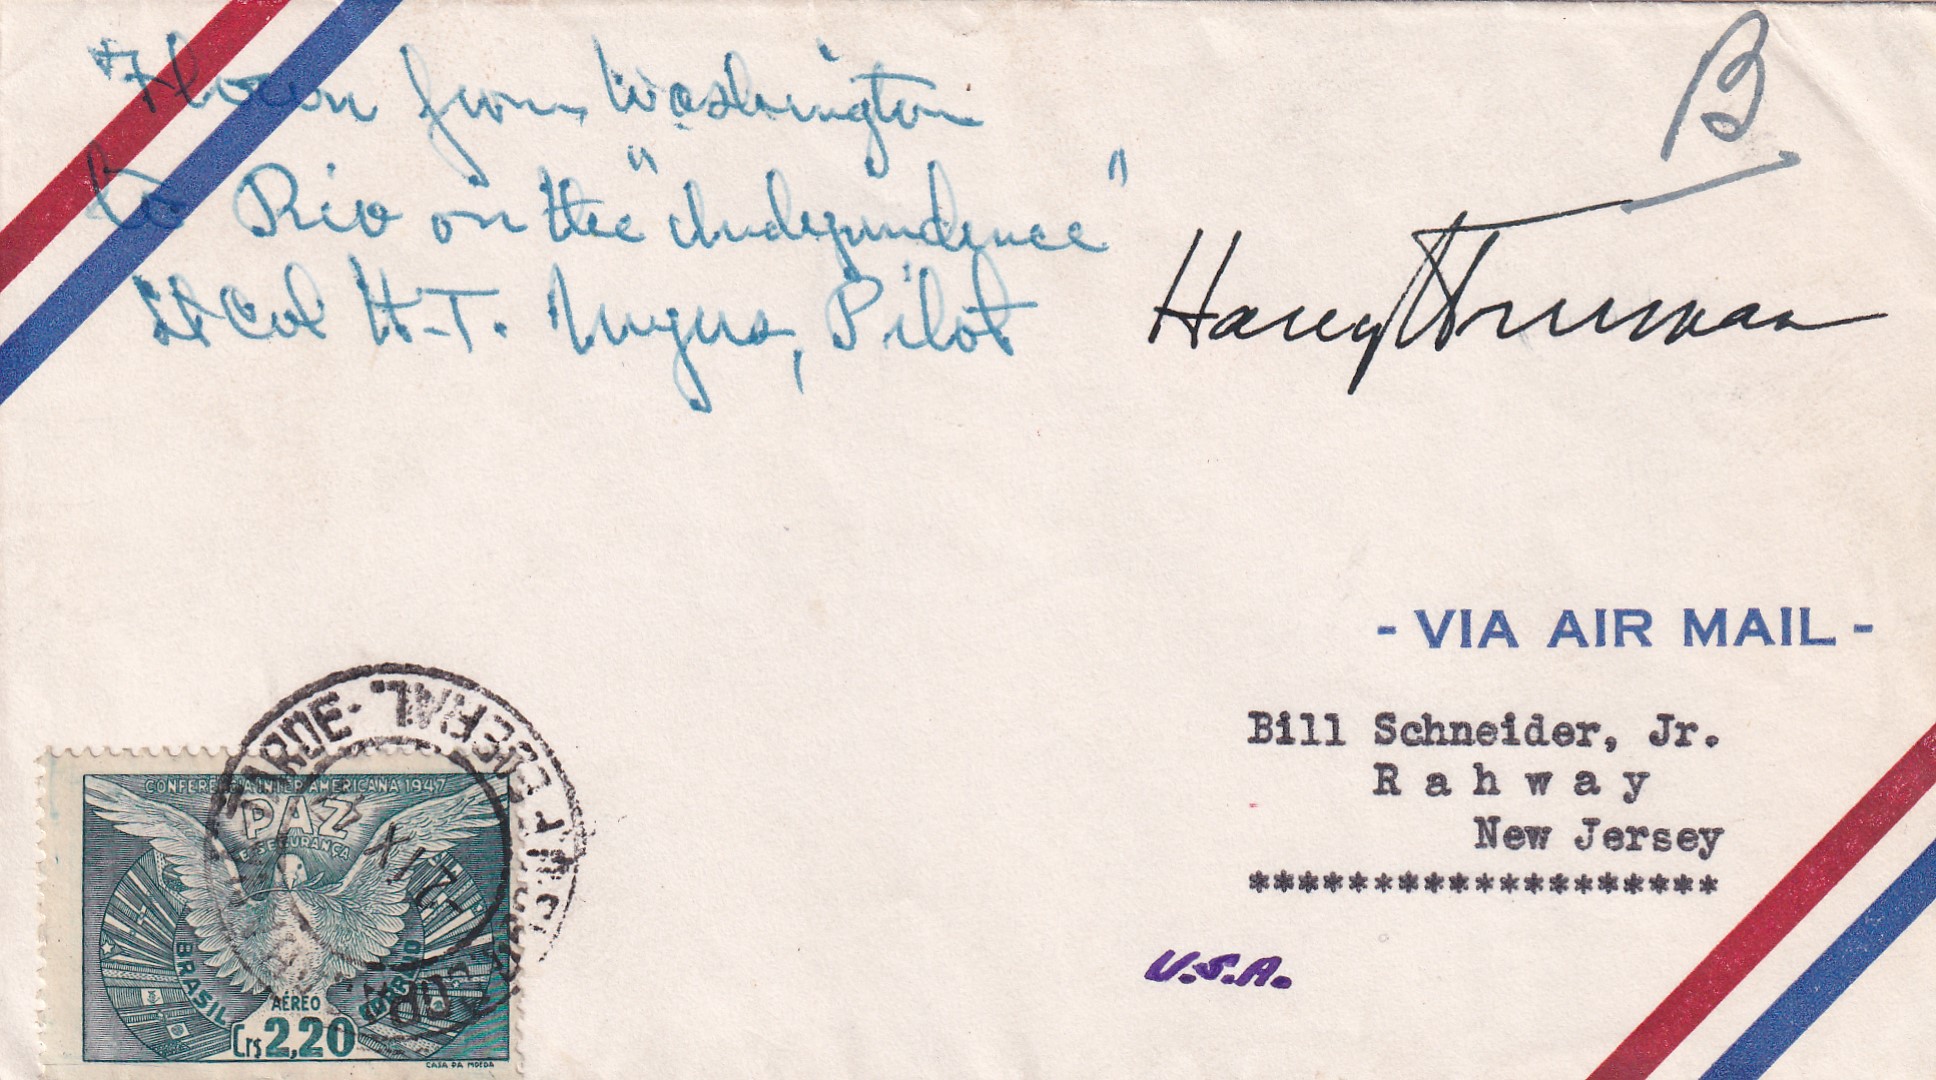 Flown from Washington
to Rio on the "Independence"
Lt Col H.T. Myers, Pilot
B
Harry Truman
- VIA AIR MAIL -
Bill Schneider, Jr.
Rahway
New Jersey
*******************
U.S.A.
CONFERÊNCIA INTERAMERICANA 1947
PAZ
E SEGURANÇA
BRASIL
CORREIO
AÉREO
Cr$ 2,20
CASA DA MOEDA
TARDE · D. FEDERAL
2 IX